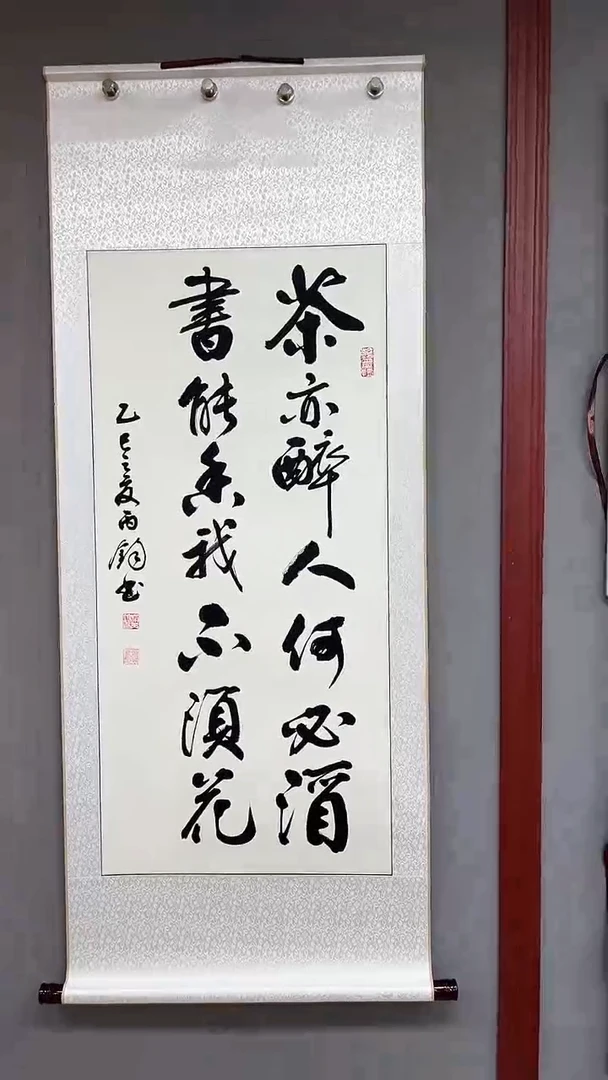 茶亦醉人何必酒
書能香我不須花
乙巳之夏丙鈞书